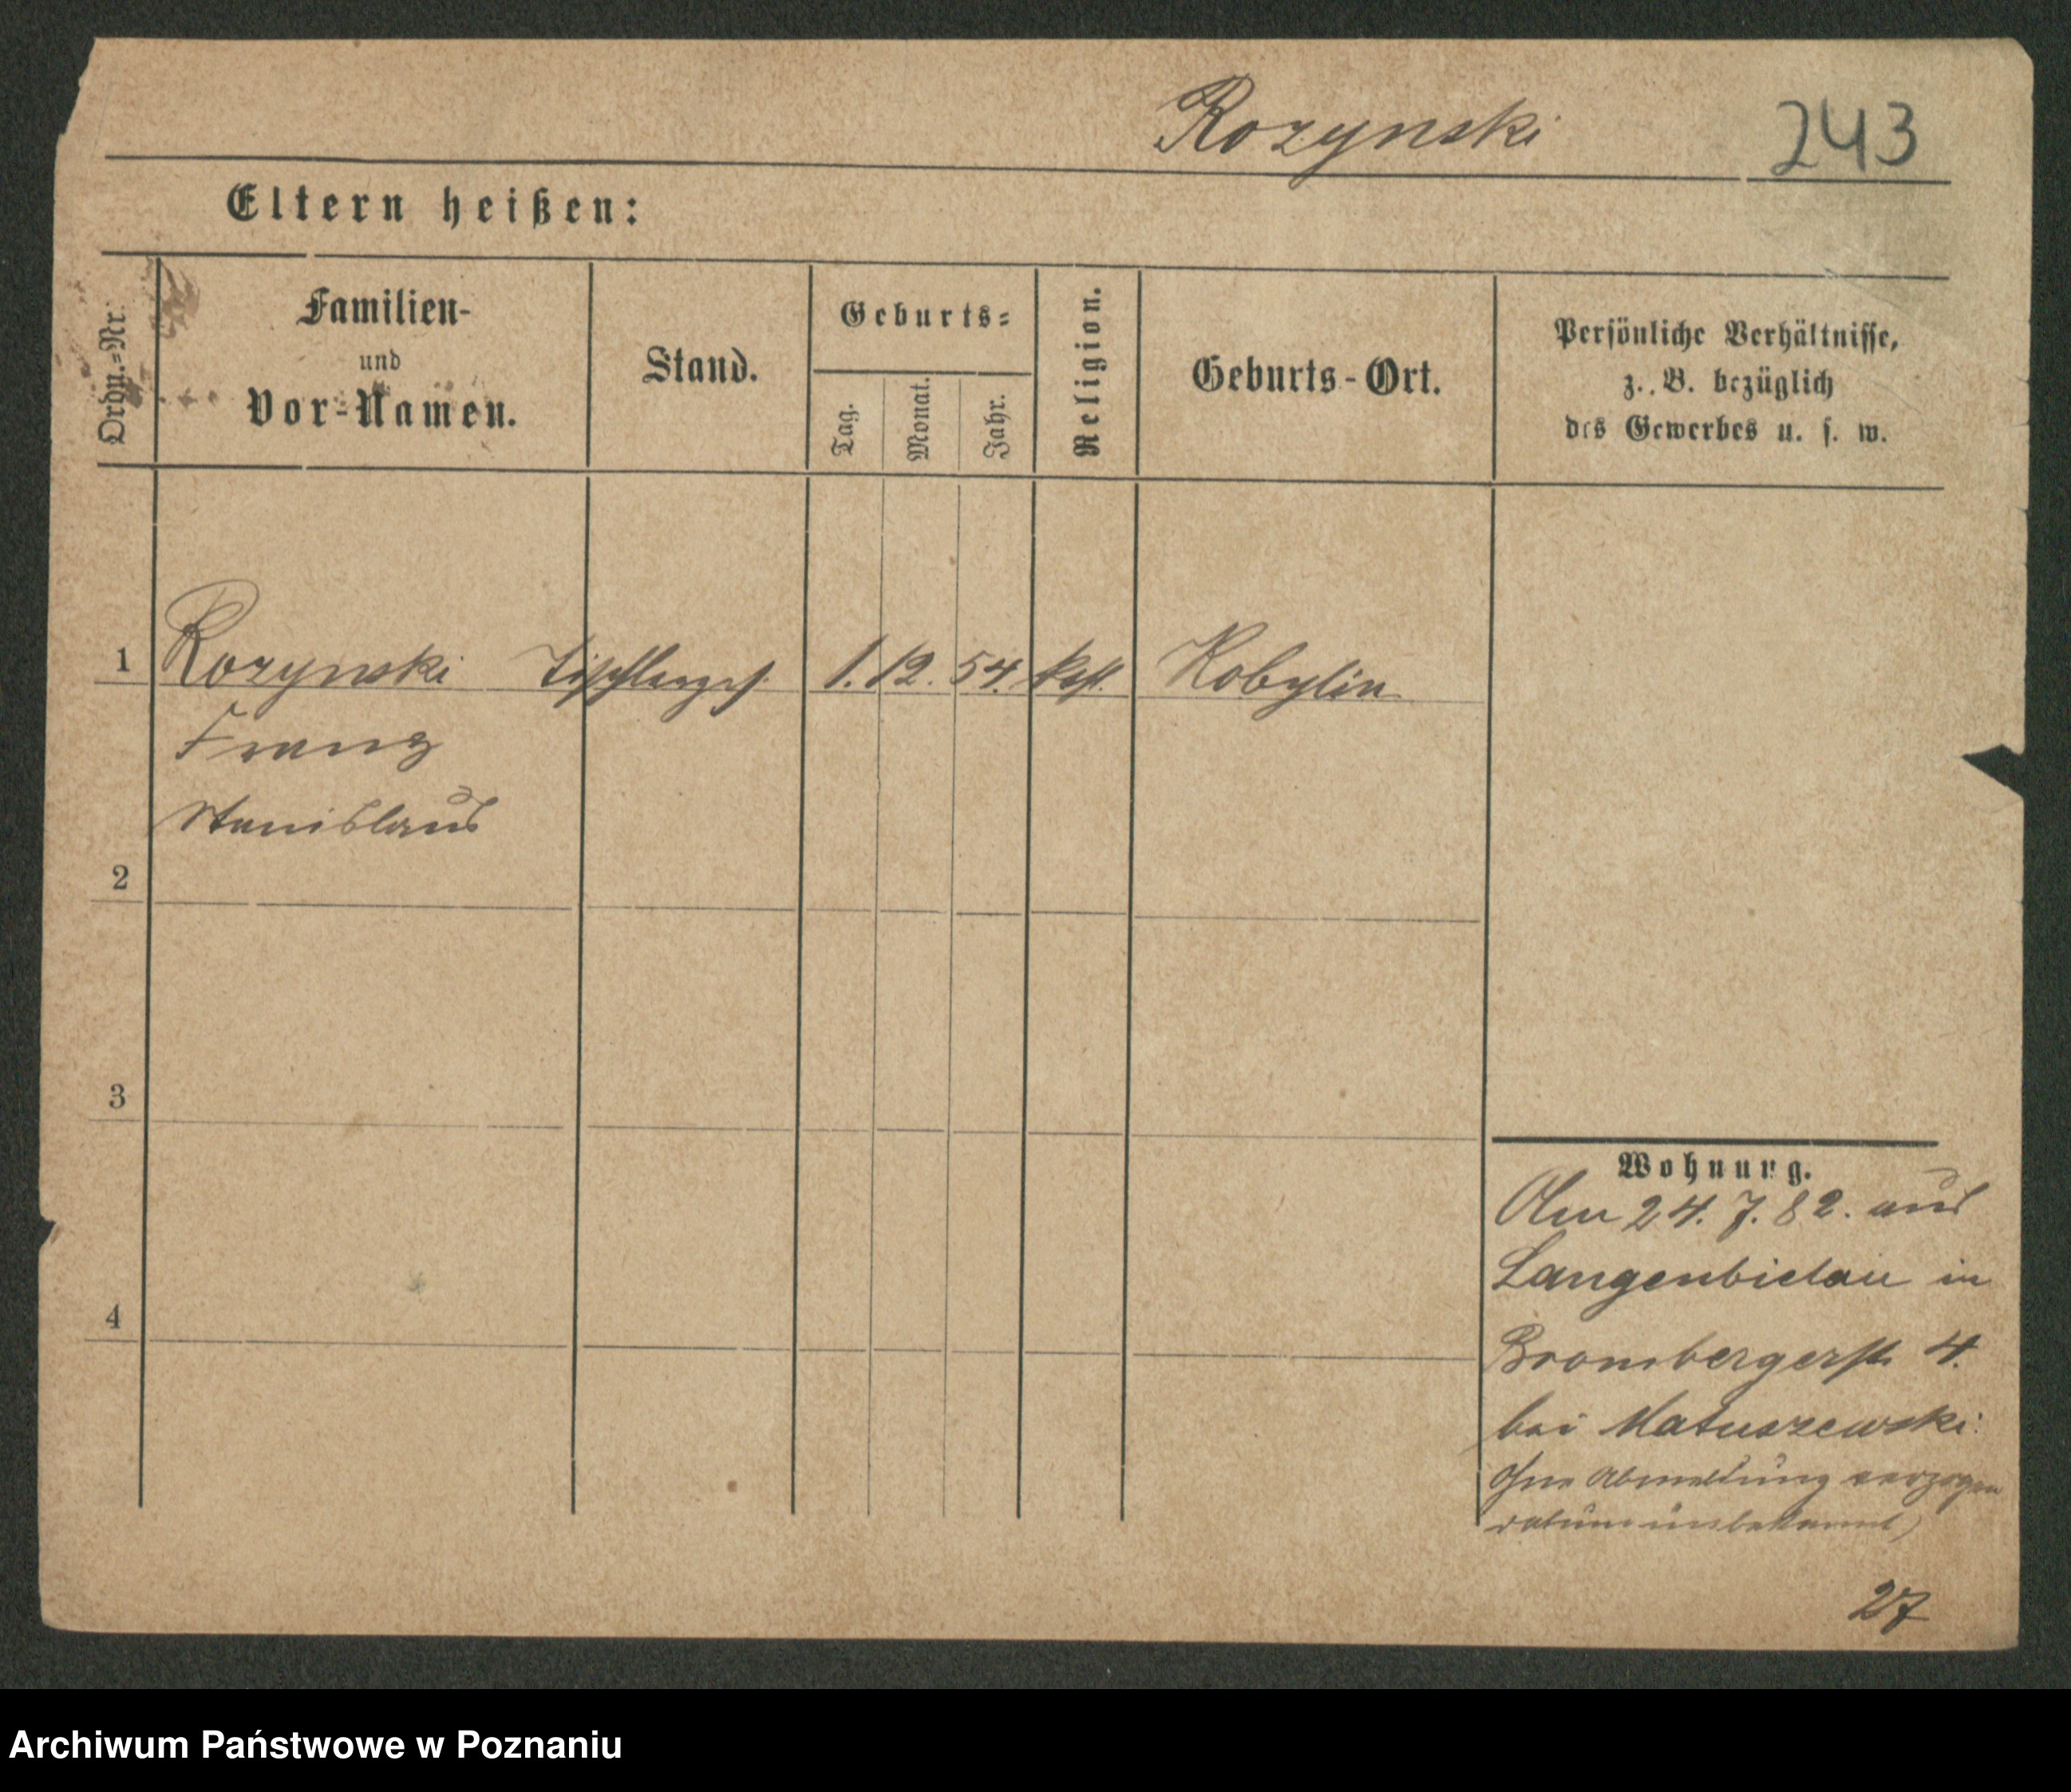 Rozynski 243
Eltern heißen:
Ordn.=Nr.
Familien-
und
Vor-Namen.
Stand.
Geburts=
Tag.
Monat.
Jahr.
Religion.
Geburts-Ort.
Persönliche Verhältnisse,
z. B. bezüglich
des Gewerbes u. s. w.
1 Rozynski Tischlerges. 1. 12. 54. kath. Kobylin
Franz
Stanislaus
2
3
4
Wohnung.
Am 24. 7. 82. aus
Langenbielau in
Brombergerstr 4.
bei Matuszewski.
Ohne Abmeldung verzogen
datum unbekannt)
27
Archiwum Państwowe w Poznaniu